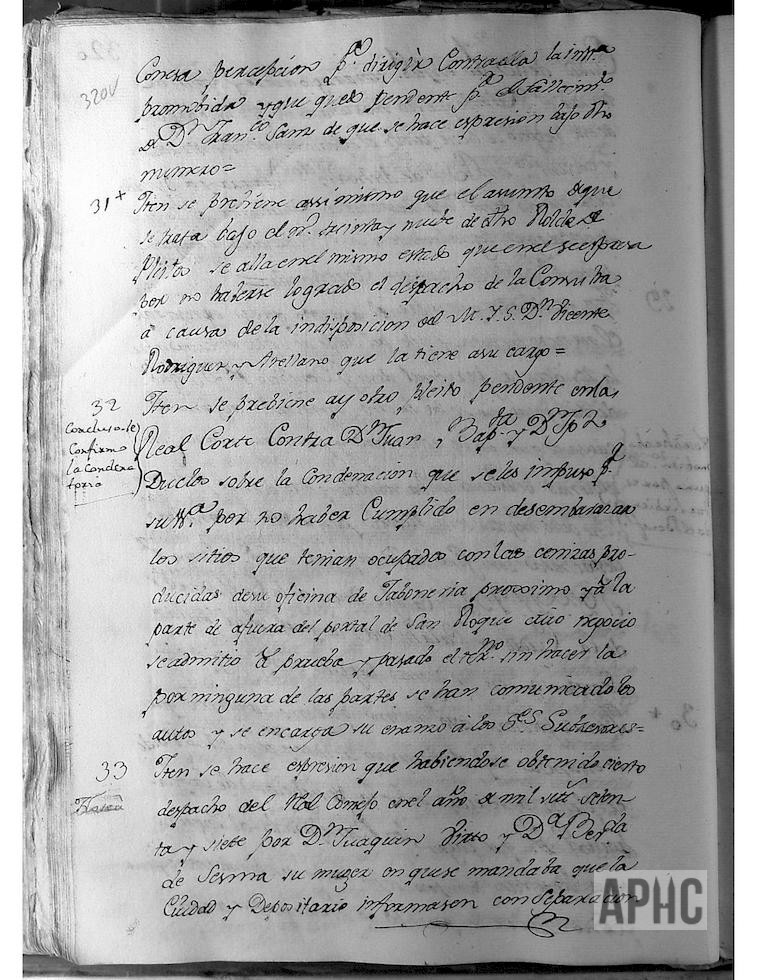 320v
Conesa percepcion p.a dirigir Contraella la inst.a
promobida y que quedó pendente p.r el fallecim.to
de D.n Fran.co Sanz de que se hace expresion bajo dho
numero=
31+ Iten se prebiene assimismo que el asunto de que
se trata bajo el n.º treinta y nuebe de dho Rolde de
Pleitos se alla en el mismo estado que en el se expresa
por no haberse logrado el despacho de la Consulta
a causa de la indisposicion del M. I. S. D.n Vicente
Rodriguez y Arellano que la tiene a su cargo=
32 Iten se prebiene ay otro pleito pendente en la
Concluso se
Confirmo
la Condena
toria
Real Corte Contra D.n Juan Bap.ta y D.n Jph
Duclos sobre la Condenacion que se les impuso p.r
su Mag.d por no haber Cumplido en desembarazar
los sitios que tenian ocupados con las cenizas pro-
ducidas de su oficina de Jaboneria proximo y á la
parte de afuera del portal de San Roque cuio negocio
se admitio á prueba y pasado el term.no sin hacer la
por ninguna de las partes se han comunicado los
autos y se encarga su examo á los S.es Subcesores=
33 Iten se hace expresion que habiendose obtenido cierto
despacho del R.al Consejo en el año de mil set.s seten
ta y siete por D.n Juaquin Virto y D.a Ber.da
de Sesma su muger en que se mandaba que la
Ciudad y Depositario informasen con separacion
APHC